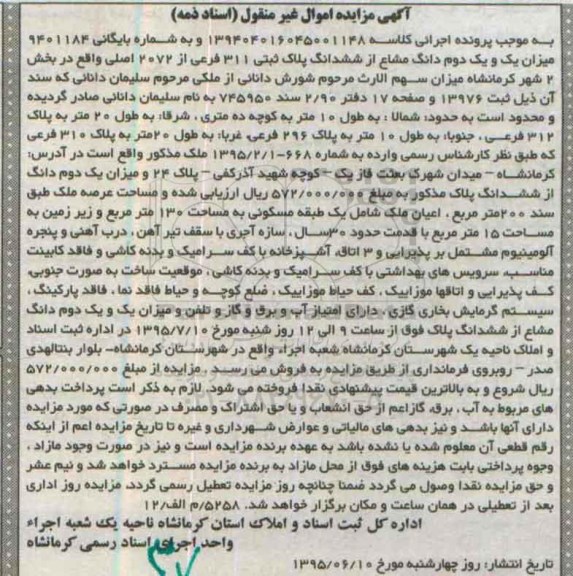 آگهی مزایده اموال غیر منقول (اسناد ذمه)
به موجب پرونده اجرائی کلاسه ۱۳۹۴۰۴۰۱۶۰۴۵۰۰۱۱۴۸ و به شماره بایگانی ۹۴۰۱۱۸۴
میزان یک و یک دوم دانگ مشاع از ششدانگ پلاک ثبتی ۳۱۱ فرعی از ۲۰۷۲ اصلی واقع در بخش
۲ شهر کرمانشاه میزان سهم الارث مرحوم شورش دانائی از ملکی مرحوم سلیمان دانائی که سند
آن ذیل ثبت ۱۳۹۷۶ و صفحه ۱۷ دفتر ۲/۹۰ سند ۷۴۵۹۵۰ به نام سلیمان دانائی صادر گردیده
و محدود است به حدود: شمالا : به طول ۱۰ متر به کوچه ده متری ، شرقا: به طول ۲۰ متر به پلاک
۳۱۲ فرعی ، جنوبا: به طول ۱۰ متر به پلاک ۲۹۶ فرعی، غربا: به طول ۲۰متر به پلاک ۳۱۰ فرعی
که طبق نظر کارشناس رسمی وارده به شماره ۶۶۸-۱۳۹۵/۲/۱ ملک مذکور واقع است در آدرس:
کرمانشاه – میدان شهرک بعثت فاز یک – کوچه شهید آذرکفی – پلاک ۲۴ و میزان یک دوم دانگ
از ششدانگ پلاک مذکور به مبلغ ۵۷۲/۰۰۰/۰۰۰ ریال ارزیابی شده و مساحت عرصه ملک طبق
سند ۲۰۰متر مربع ، اعیان ملک شامل یک طبقه مسکونی به مساحت ۱۳۰ متر مربع و زیر زمین به
مساحت ۱۵ متر مربع با قدمت حدود ۳۰سال ، سازه آجری با سقف تیر آهن ، درب آهنی و پنجره
آلومینیوم مشتمل بر پذیرایی و ۳ اتاق، آشپزخانه با کف سرامیک و بدنه کاشی و فاقد کابینت
مناسب، سرویس های بهداشتی با کف سرامیک و بدنه کاشی ، موقعیت ساخت به صورت جنوبی،
کف پذیرایی و اتاقها موزاییک ، کف حیاط موزاییک ، ضلع کوچه و حیاط فاقد نما ، فاقد پارکینگ ،
سیستم گرمایش بخاری گازی ، دارای امتیاز آب و برق و گاز و تلفن و میزان یک و یک دوم دانگ
مشاع از ششدانگ پلاک فوق از ساعت ۹ الی ۱۲ روز شنبه مورخ ۱۳۹۵/۷/۱۰ در اداره ثبت اسناد
و املاک ناحیه یک شهرستان کرمانشاه شعبه اجراء واقع در شهرستان کرمانشاه– بلوار بنتالهدی
صدر – روبروی فرمانداری از طریق مزایده به فروش می رسد . مزایده از مبلغ ۵۷۲/۰۰۰/۰۰۰
ریال شروع و به بالاترین قیمت پیشنهادی نقدا فروخته می شود. لازم به ذکر است پرداخت بدهی
های مربوط به آب ، برق، گازاعم از حق انشعاب و یا حق اشتراک و مصرف در صورتی که مورد مزایده
دارای آنها باشد و نیز بدهی های مالیاتی و عوارض شهرداری و غیره تا تاریخ مزایده اعم از اینکه
رقم قطعی آن معلوم شده یا نشده باشد به عهده برنده مزایده است و نیز در صورت وجود مازاد ،
وجوه پرداختی بابت هزینه های فوق از محل مازاد به برنده مزایده مسترد خواهد شد و نیم عشر
و حق مزایده نقدا وصول می گردد ضمنا چنانچه روز مزایده تعطیل رسمی گردد، مزایده روز اداری
بعد از تعطیلی در همان ساعت و مکان برگزار خواهد شد. ۵۲۵۸/م الف/۱۲
اداره کل ثبت اسناد و املاک استان کرمانشاه ناحیه یک شعبه اجراء
واحد اجرای اسناد رسمی کرمانشاه
تاریخ انتشار: روز چهارشنبه مورخ ۱۳۹۵/۰۶/۱۰
۳۷